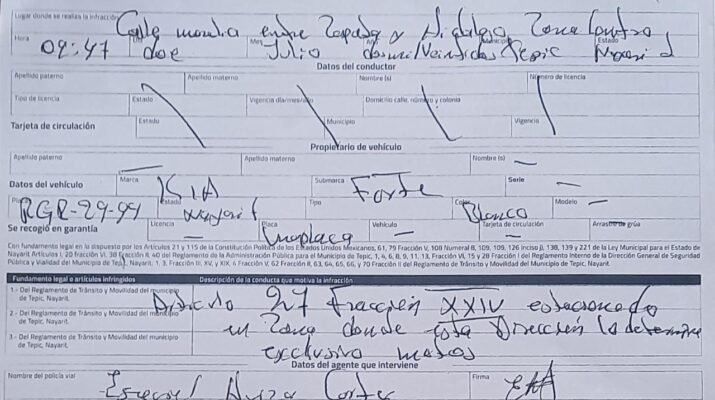 Lugar donde se realiza la infracción
Calle mondia entre Zapata y Hidalgo Zona Centro
Hora Mes Municipio Estado
09:47 doe Julio dosmilVeintidos Tepic Nayarit
Datos del conductor
Apellido paterno Apellido materno Nombre (s) Número de licencia
Tipo de licencia Estado Vigencia día/mes/año Domicilio calle, número y colonia
Tarjeta de circulación Estado Municipio Vigencia
Propietario de vehículo
Apellido paterno Apellido materno Nombre (s) —
Datos del vehículo Marca KIA Submarca Forte Serie —
RGR-29-94 Estado Nayarit Tipo Color Blanco Modelo —
Se recogió en garantía Licencia — Placa Unaplaca Vehículo — Tarjeta de circulación — Arrastre de grúa
Con fundamento legal en lo dispuesto por los Artículos 21 y 115 de la Constitución Política de los Estados Unidos Mexicanos, 61, 79 Fracción V, 108 Numeral B, 109, 109, 126 inciso j), 138, 139 y 221 de la Ley Municipal para el Estado de
Nayarit Artículos I, 20 fracción VI, 30 Fracción II, 40 del Reglamento de la Administración Pública para el Municipio de Tepic, 1, 4, 6, 8, 9, 11, 13, Fracción VI, 15 y 28 Fracción I del Reglamento Interno de la Dirección General de Seguridad
Pública y Vialidad del Municipio de Tepic, Nayarit. 1, 3, Fracción II, XV, y XIX, 6 Fracción V, 62 Fracción II, 63, 64, 65, 66, y 70 Fracción II del Reglamento de Tránsito y Movilidad del Municipio de Tepic, Nayarit.
Fundamento legal o artículos infringidos Descripción de la conducta que motiva la infracción
1.- Del Reglamento de Tránsito y Movilidad del municipio de Tepic, Nayarit.
Articulo 27 fracción XXIV estacionado
2.- Del Reglamento de Tránsito y Movilidad del municipio de Tepic, Nayarit.
en Zona donde esta Dirección lo determine
3.- Del Reglamento de Tránsito y Movilidad del municipio de Tepic, Nayarit.
exclusivo motos
Datos del agente que interviene
Nombre del policía vial Firma